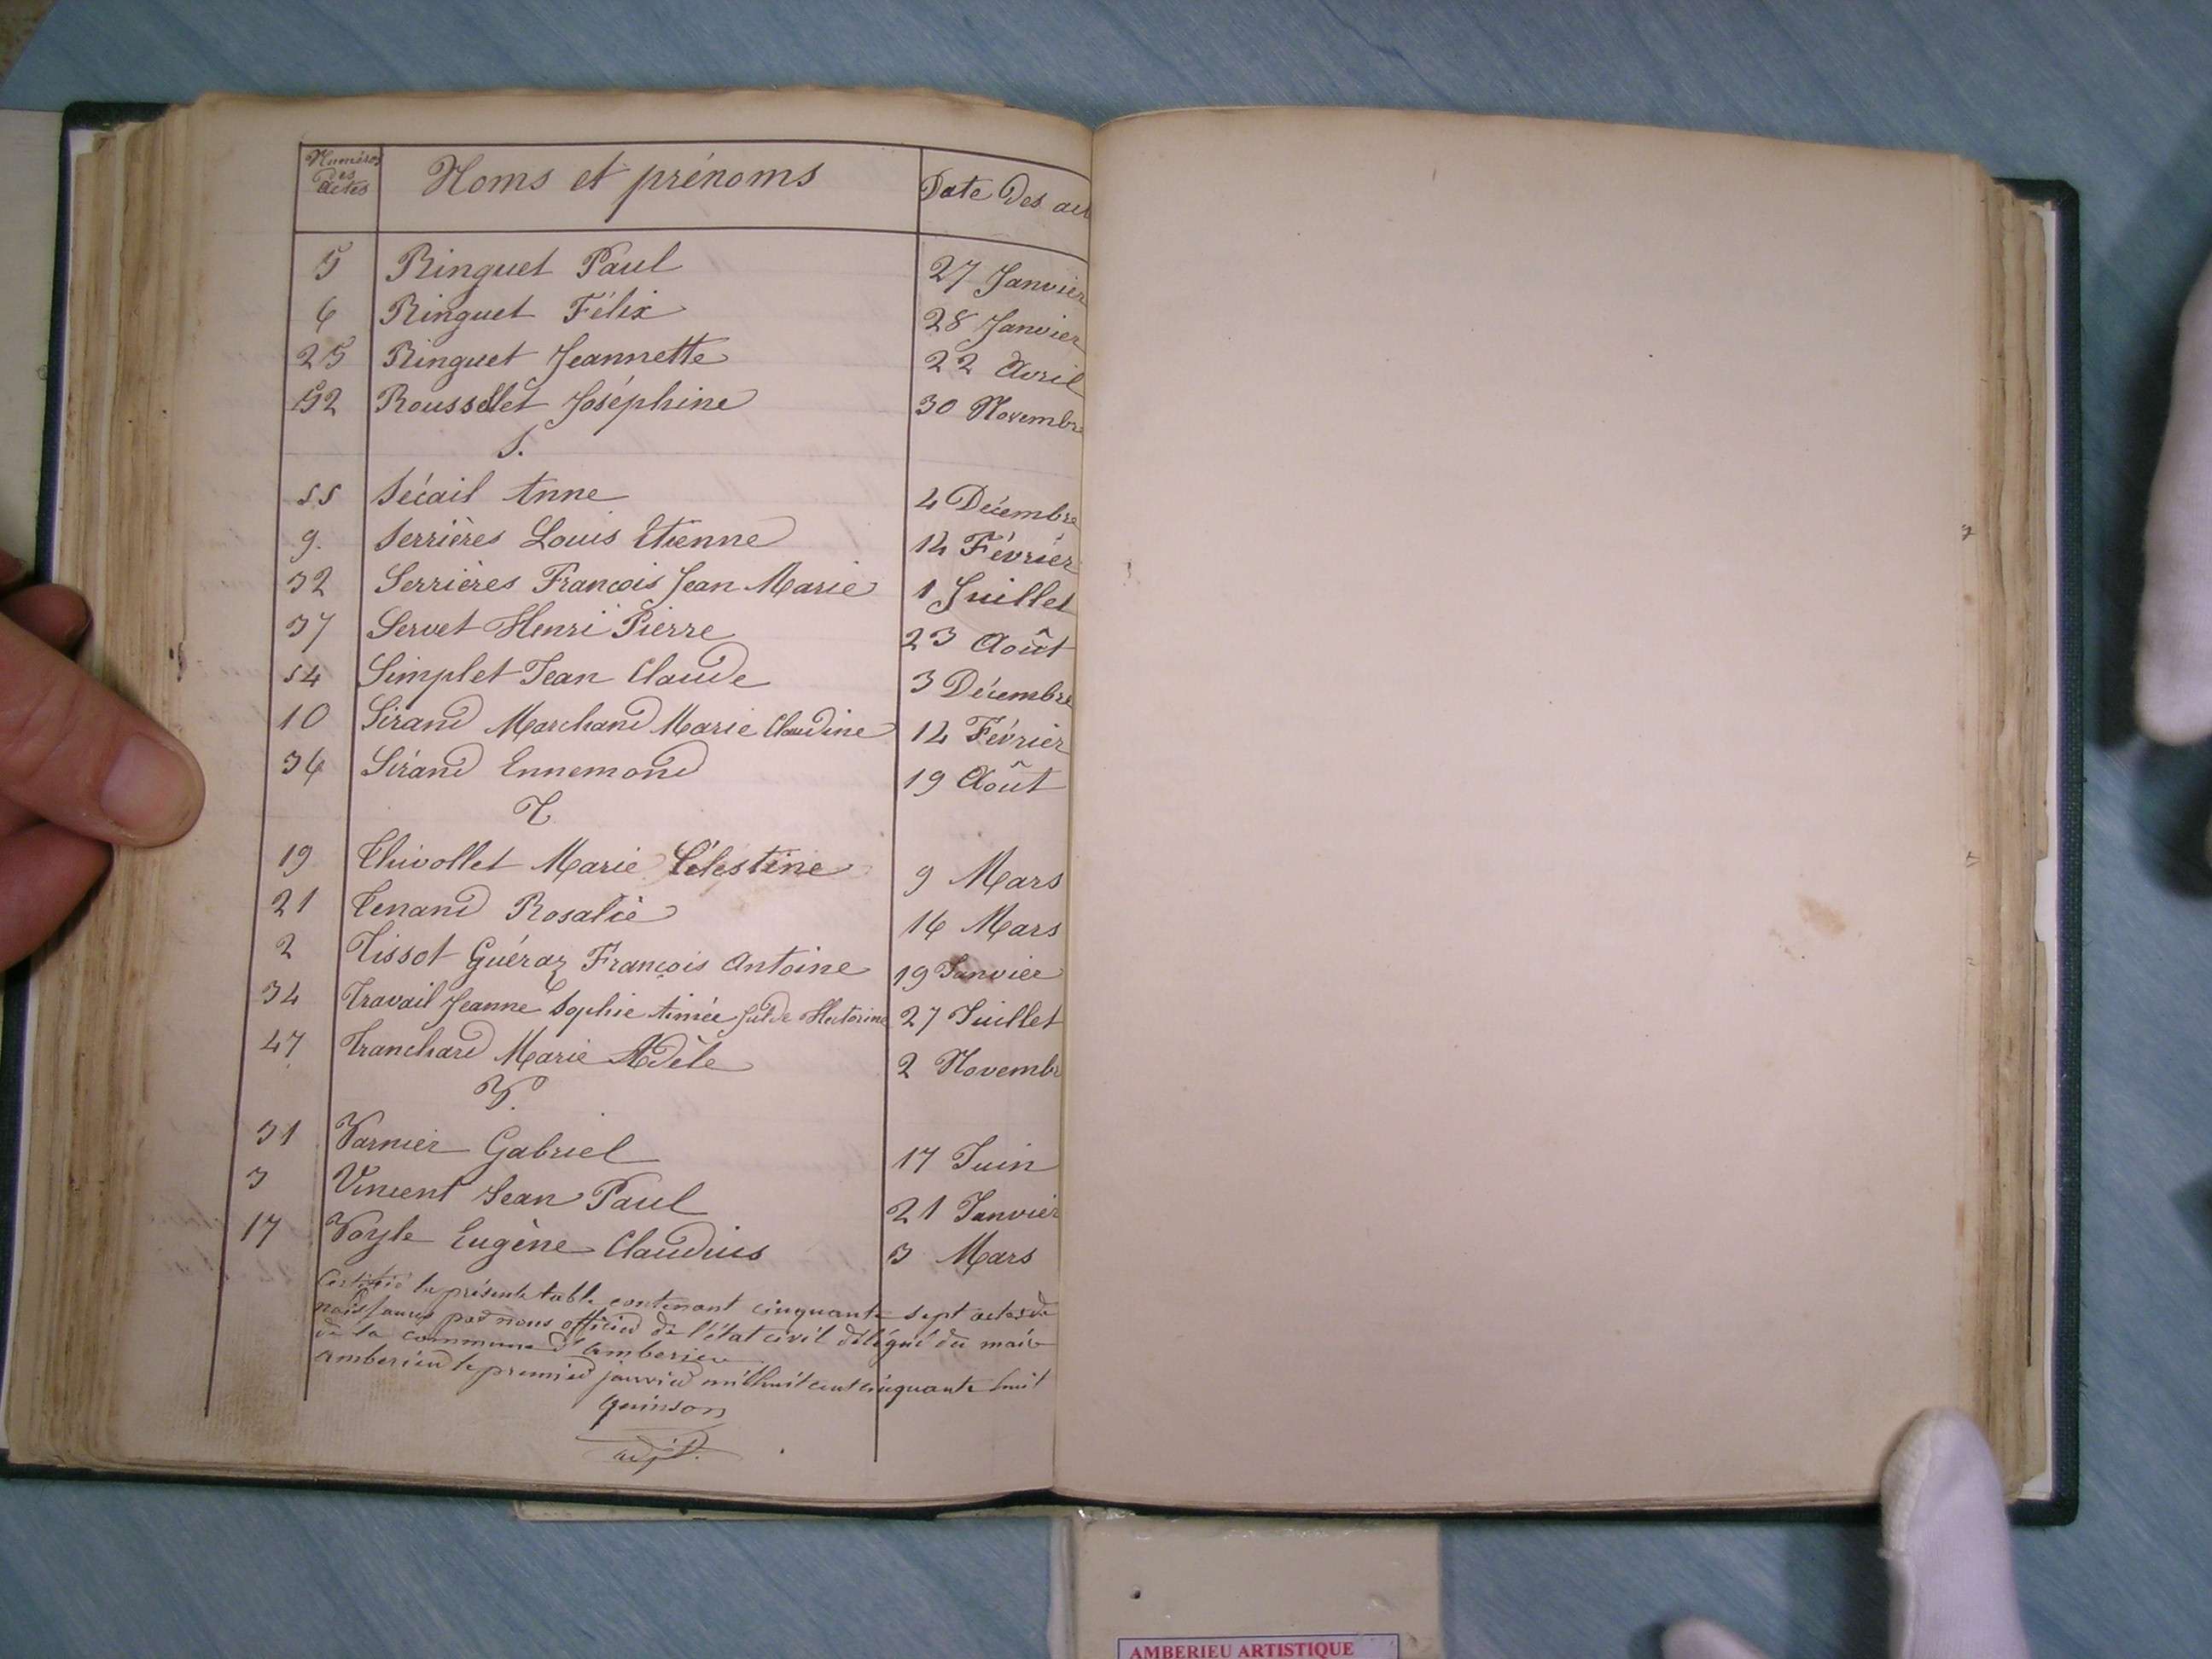 Numéros des actes Noms et prénoms Date des act
5 Ringuet Paul 27 Janvier
6 Ringuet Félix 28 Janvier
25 Ringuet Jeannette 22 Avril
52 Rousselet Joséphine 30 Novembre
S.
55 Sécail Anne 4 Décembre
9. Serrières Louis Etienne 14 Février
32 Serrières François Jean Marie 1 Juillet
37 Servet Henri Pierre 23 Août
54 Simplet Jean Claude 3 Décembre
10 Sirand Marchand Marie Claudine 14 Février
36 Sirand Ennemond 19 Août
T
19 Thivollet Marie Célestine 9 Mars
21 Tenand Rosalie 16 Mars
2 Tissot Guéraz François Antoine 19 Janvier
34 Travail Jeanne Sophie Aimée 27 Juillet
47 Tranchard Marie Adèle 2 Novembr
V.
31 Varnier Gabriel 17 Juin
3 Vincent Jean Paul 21 Janvier
17 Voyle Eugène Claudius 3 Mars
Certifié la présente table contenant cinquante sept actes de
naissances par nous officier de l'état civil délégué du maire
de la commune d'amberieu
amberieu le premier janvier mil huit cent cinquante huit
Quinson
adjt.
AMBERIEU ARTISTIQUE